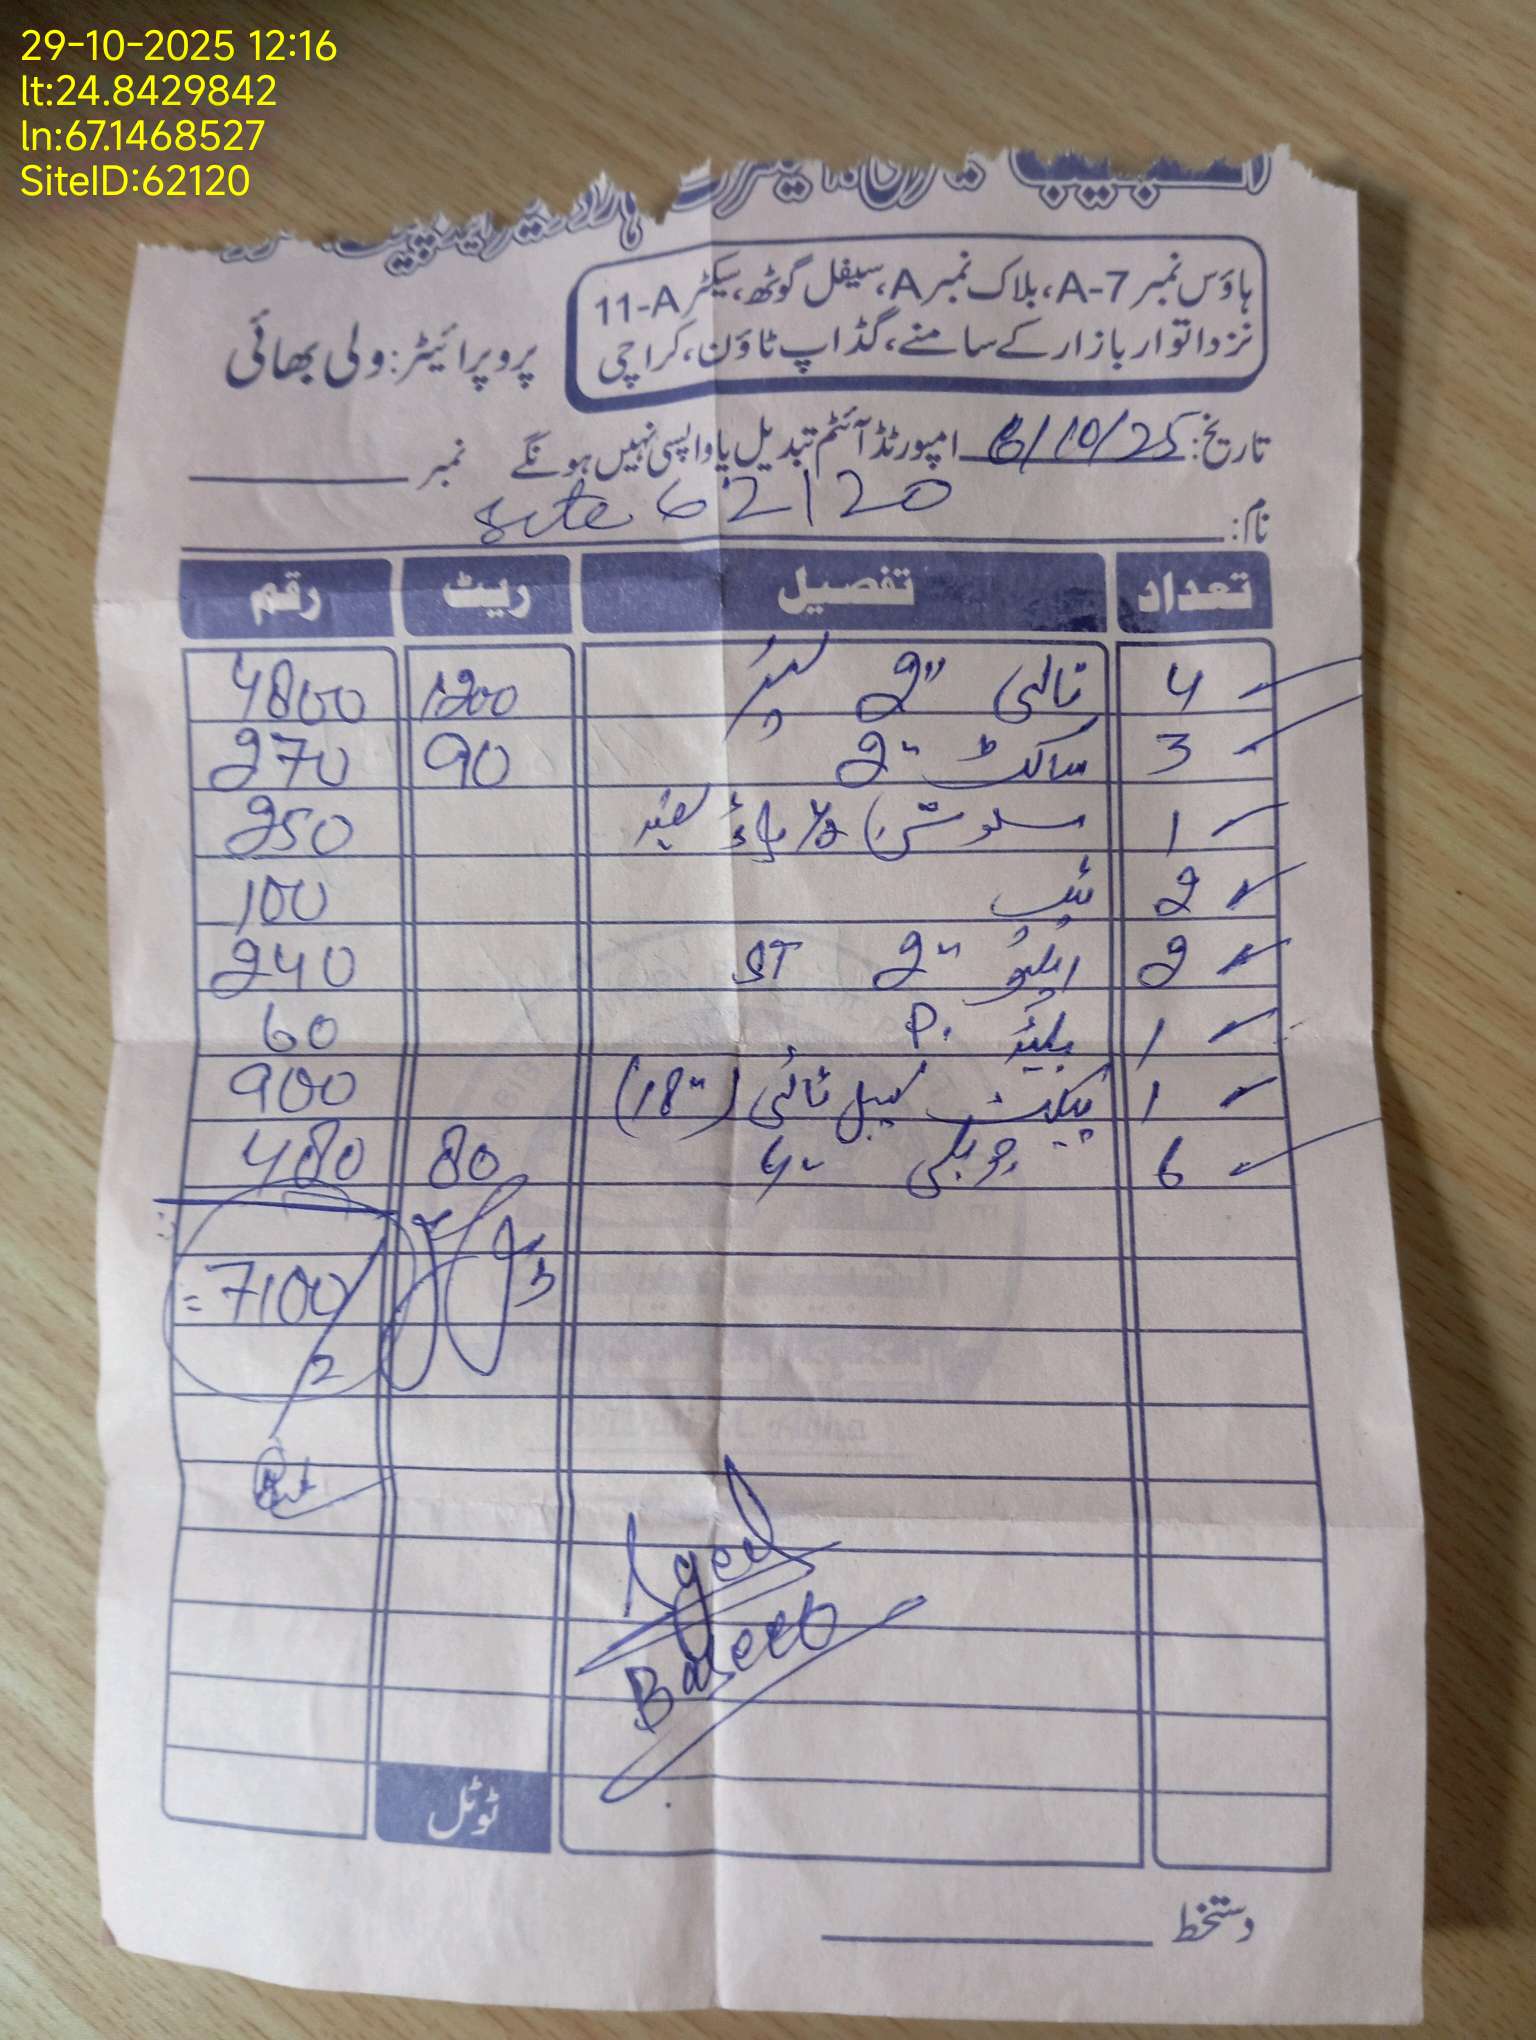 29-10-2025 12:16
lt:24.8429842
ln:67.1468527
SiteID:62120
ہاؤس نمبر A-7، بلاک نمبر A، سیفل گوٹھ، سیکٹر 11-A
نزد اتوار بازار کے سامنے، گڈاپ ٹاؤن، کراچی
پروپرائیٹر: ولی بھائی
تاریخ: 6/10/25 امپورٹڈ آئٹم تبدیل یا واپسی نہیں ہونگے نمبر
نام: site 62120
تعداد تفصیل ریٹ رقم
4 نالی 2" 1200 4800
3 ساکٹ 2" 90 270
1 سلوشن 1/2 250
2 ٹیپ 100
2 ایلبو 2" ST 240
1 بلیڈ P. 60
1 پیکٹ کیبل ٹائی (18") 900
6 4" 80 480
= 7100
Aqeel
Baseeb
ٹوٹل
دستخط